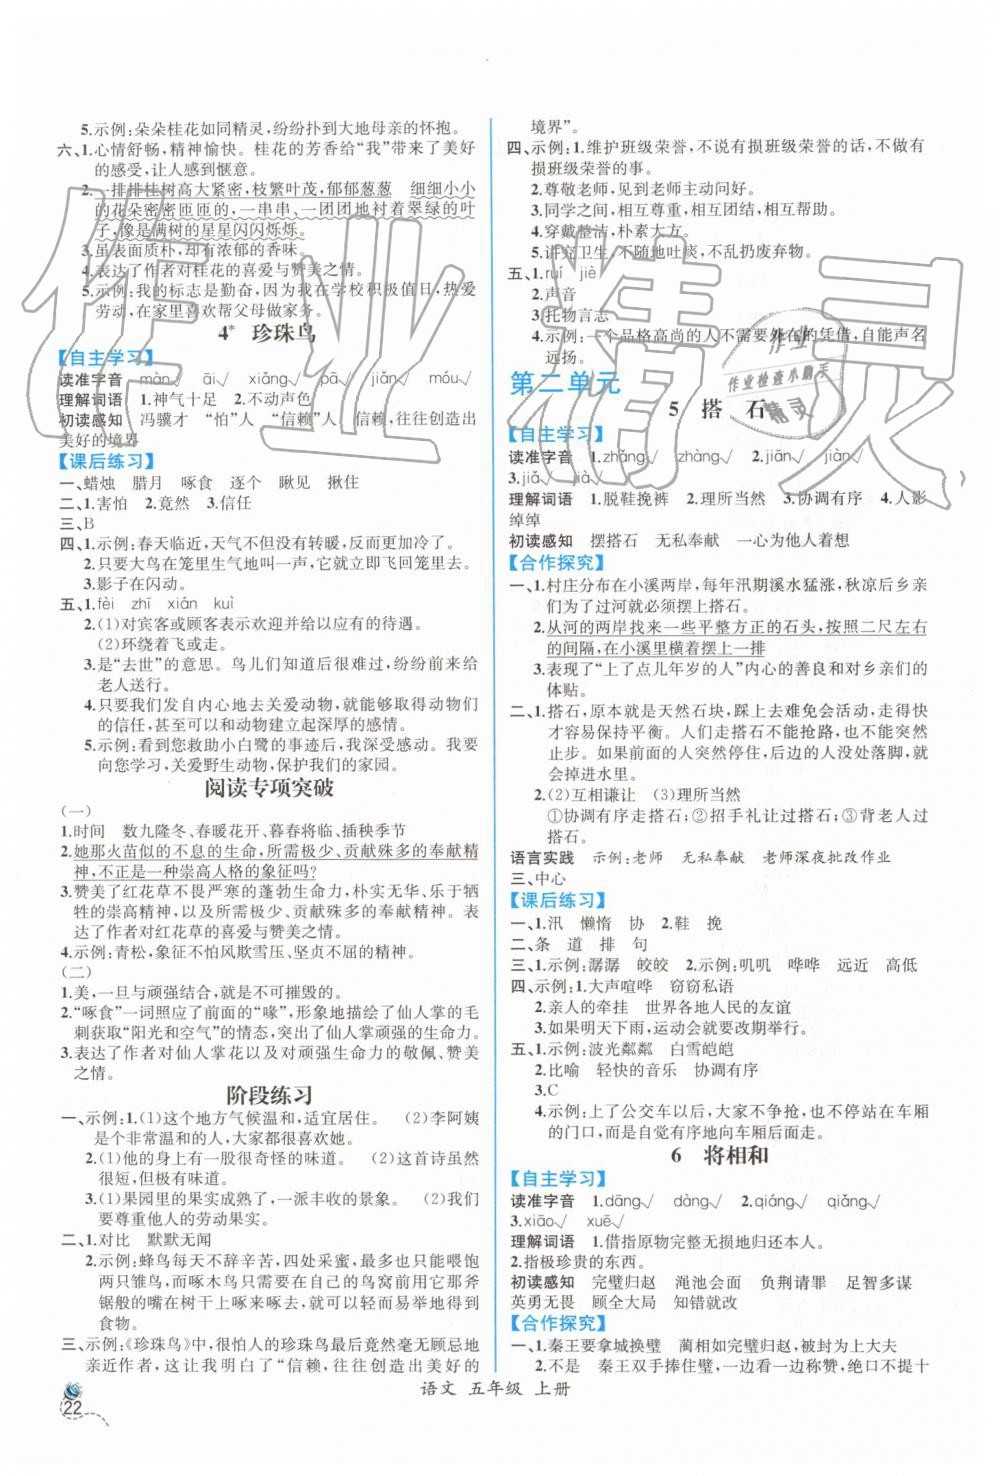 5.示例:朵朵桂花如同精灵,纷纷扑到大地母亲的怀抱。
六、1.心情舒畅,精神愉快。桂花的芳香给“我”带来了美好
的感受,让人感到惬意。
2.一排排桂树高大紧密,枝繁叶茂,郁郁葱葱 细细小小
的花朵密密匝匝的,一串串、一团团地衬着翠绿的叶
子,像是满树的星星闪闪烁烁。
3.虽表面质朴,却有浓郁的香味。
4.表达了作者对桂花的喜爱与赞美之情。
5.示例:我的标志是勤奋,因此,在学校积极值日,热爱
劳动,在家里喜欢帮父母做家务。
4* 珍珠鸟
【自主学习】
读准字音 màn√ āi√ xiǎng√ pā√ jiǎn√ móu√
理解词语 1.神气十足 2.不动声色
初读感知 冯骥才 “怕”人 “信赖”人 信赖,往往创造出
美好的境界
【课后练习】
一、蜡烛 腊月 啄食 逐个 瞅见 揪住
二、1.害怕 2.竟然 3.信任
三、B
四、1.示例:春天临近,天气不但没有转暖,反而更加冷了。
2.只要大鸟在笼里生气地叫一声,它就立即飞回笼里去。
3.影子在闪动。
五、1.fèi zhī xián kuì
2.(1)对宾客或顾客表示欢迎并给以应有的待遇。
(2)环绕着飞或走。
3.是“去世”的意思。鸟儿们知道后很难过,纷纷前来给
老人送行。
4.只要我们发自内心地去关爱动物,就能够获得动物们
的信任,甚至可以和动物建立起深厚的感情。
5.示例:看到您救助小白鹭的事迹后,我深受感动。我要
向您学习,关爱野生动物,保护我们的家园。
阅读专项突破
(一)
1.时间 数九隆冬、春暖花开、暮春将临、插秧季节
2.她那火苗似的不息的生命,所需极少、贡献殊多的奉献精
神,不正是一种崇高人格的象征吗?
3.赞美了红花草不畏严寒的蓬勃生命力,朴实无华、乐于牺
牲的崇高精神,以及所需极少、贡献殊多的奉献精神。表
达了作者对红花草的喜爱与赞美之情。
4.示例:青松,象征不怕风欺雪压、坚贞不屈的精神。
(二)
1.美,一旦与顽强结合,就是不可摧毁的。
2.“啄食”一词照应了前面的“喙”,形象地描绘了仙人掌的毛
刺获取“阳光和空气”的情态,突出了仙人掌顽强的生命力。
3.表达了作者对仙人掌花以及对顽强生命力的敬佩、赞美
之情。
阶段练习
一、示例:1.(1)这个地方气候温和,适宜居住。 (2)李阿姨
是个非常温和的人,大家都很喜欢她。
2.(1)他的身上有一股很奇怪的味道。 (2)这首诗虽然
很短,但很有味道。
3.(1)果园里的果实成熟了,一派丰收的景象。 (2)我们
要尊重他人的劳动果实。
二、1.对比 默默无闻
2.示例:蜂鸟每天不辞辛苦,四处采蜜,最多时一天能喂饱
两只雏鸟,而啄木鸟只需要在自己的鸟窝里用它那
锯般的嘴在树干上啄来啄去,就可以获得丰富的
食物。
三、示例:《珍珠鸟》中,很怕人的珍珠鸟最后竟然毫无顾忌地
亲近作者,这让我明白了“信赖,往往创造出美好的
境界”。
四、示例:1.维护班级荣誉,不说有损班级荣誉的话,不做有
损班级荣誉的事。
2.尊敬老师,见到老师主动问好。
3.同学之间,相互尊重,相互团结,相互帮助。
4.穿戴整洁,朴素大方。
5.讲究卫生,不随地吐痰,不乱扔废弃物。
五、1.ruí jiè
2.声音
3.托物言志
4.示例:一个品格高尚的人不需要外在的凭借,自能声名
远扬。
第二单元
5 搭 石
【自主学习】
读准字音 1.zhǎng√ zhàng√ 2.jiān√ jiàn√
3.jiǎ√ jià√
理解词语 1.脱鞋挽裤 2.理所当然 3.协调有序 4.人影
绰绰
初读感知 摆搭石 无私奉献 一心为他人着想
【合作探究】
一、1.村庄分布在小溪两岸,每年汛期溪水猛涨,秋凉后乡亲
们为了过河就必须摆上搭石。
2.从河的两岸找来一些平整方正的石头,按照二尺左右
的间隔,在小溪里横着摆上一排
3.表现了“上了点儿年岁的人”内心的善良和对乡亲们的
体贴。
二、1.搭石,原本就是天然石块,踩上去难免会活动,走得快
才容易保持平衡。人们走搭石不能抢路,也不能突然
止步。如果前面的人突然停住,后边的人没处落脚,就
会掉进水里。
2.(2)互相谦让 (3)理所当然
①协调有序走搭石;②招手礼让过搭石;③背老人过
搭石。
语言实践 示例:老师 无私奉献 老师深夜批改作业
三、中心
【课后练习】
一、1.汛 懒惰 协 2.鞋 挽
二、条 道 排 句
三、1.示例:潺潺 皎皎 2.示例:叽叽 哗哗 远近 高低
四、示例:1.大声喧哗 窃窃私语
2.亲人的牵挂 世界各地人民的友谊
3.如果明天下雨,运动会就改期举行。
五、1.示例:波光粼粼 白雪皑皑
2.比喻 轻快的音乐 协调有序
3.C
4.示例:上了公交车以后,大家不争抢,也不停站在车厢
的门口,而是自觉有序地向车厢后面走。
6 将相和
【自主学习】
读准字音 1.dāng√ dàng√ 2.qiáng√ qiǎng√
3.xiāo√ xuē√
理解词语 1.借指原物完整无损地归还本人。
2.指极珍贵的东西。
初读感知 完璧归赵 渑池会面 负荆请罪 足智多谋
英勇无畏 顾全大局 知错就改
【合作探究】
一、1.秦王要拿城换璧 蔺相如完璧归赵,被封为上大夫
2.不是 秦王双手捧住璧,一边看一边称赞,绝口不提十
语文 五年级 上册
22
作业精灵
作业检查小助手
精灵